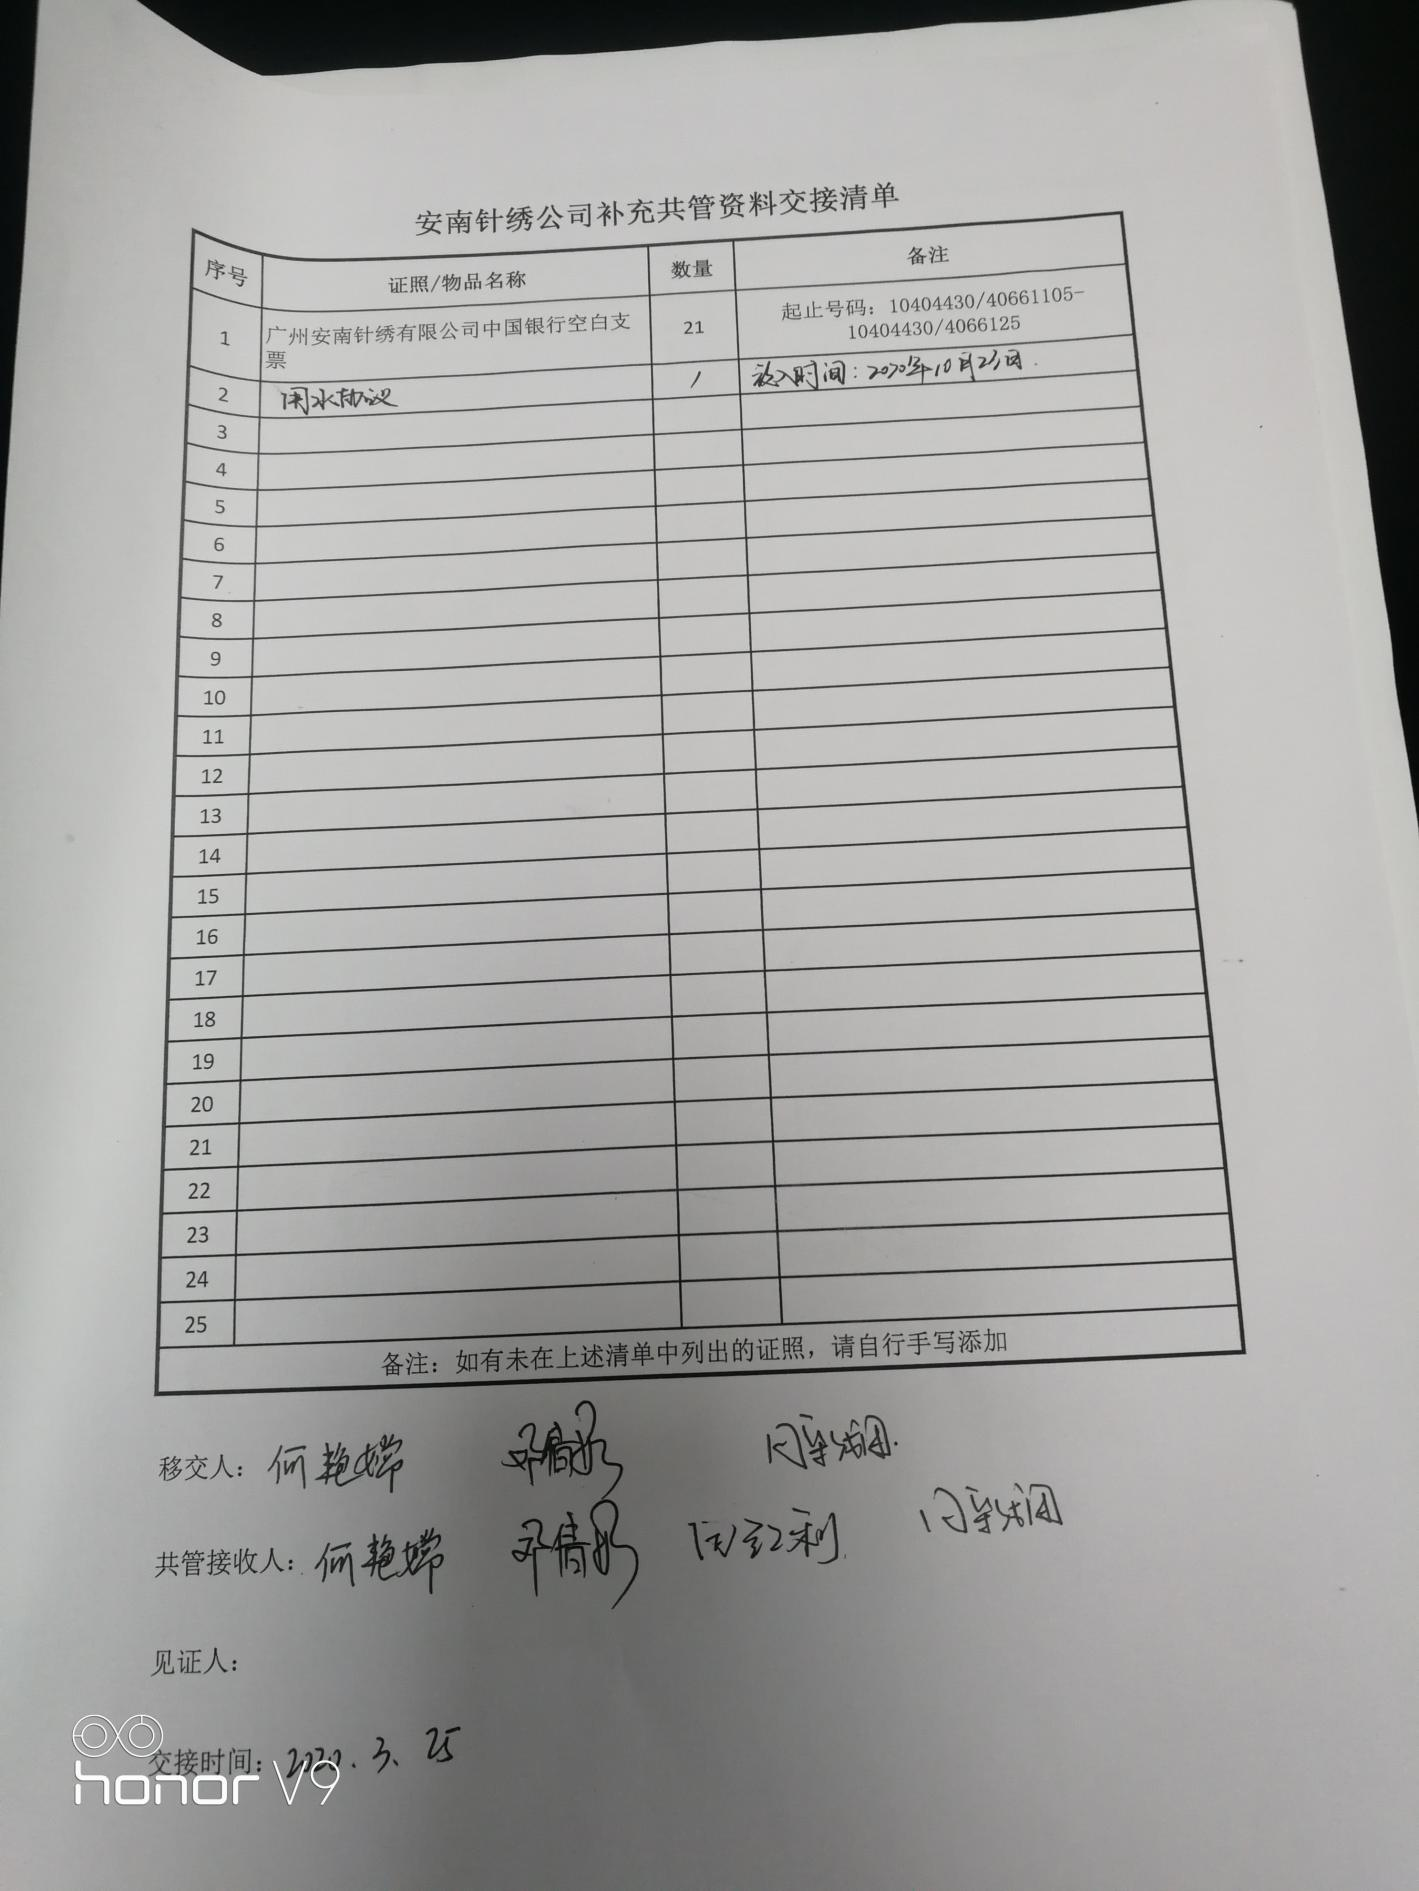 安南针绣公司补充共管资料交接清单
序号 证照/物品名称 数量 备注
1 广州安南针绣有限公司中国银行空白支票 21 起止号码：10404430/40661105-
10404430/4066125
2 用水协议 1 放入时间：2020年10月23日.
3
4
5
6
7
8
9
10
11
12
13
14
15
16
17
18
19
20
21
22
23
24
25
备注：如有未在上述清单中列出的证照，请自行手写添加
移交人：何艳嫦
共管接收人：何艳嫦
见证人：
交接时间：2020.3.25
honor V9